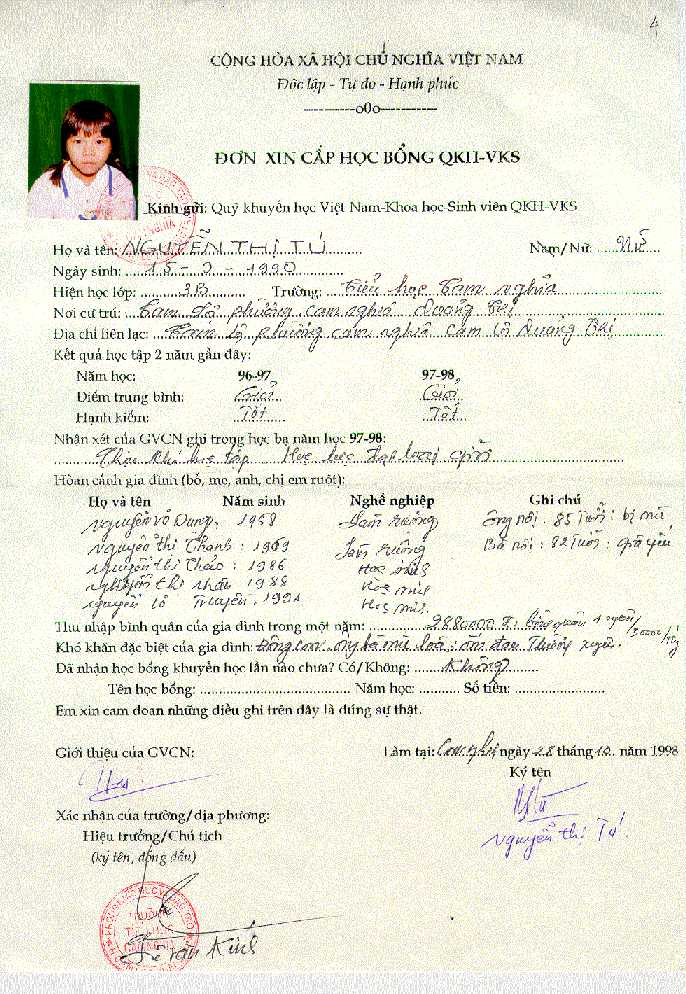 4
CỘNG HÒA XÃ HỘI CHỦ NGHĨA VIỆT NAM
Độc lập - Tự do - Hạnh phúc
-----------o0o-----------
ĐƠN XIN CẤP HỌC BỔNG QKH-VKS
Kính gửi: Quỹ khuyến học Việt Nam-Khoa học-Sinh viên QKH-VKS
Họ và tên: NGUYỄN THỊ TÚ Nam/Nữ: Nữ
Ngày sinh: 15-2-1990
Hiện học lớp: 3B Trường: Tiểu học Cam nghĩa
Nơi cư trú: phường cam nghĩa
Địa chỉ liên lạc: phường cam nghĩa Cam lộ Quảng Trị
Kết quả học tập 2 năm gần đây:
Năm học: 96-97 97-98
Điểm trung bình: Giỏi Giỏi
Hạnh kiểm: Tốt Tốt
Nhận xét của GVCN ghi trong học bạ năm học 97-98:
học tập Học lực đạt loại giỏi
Hoàn cảnh gia đình (bố, mẹ, anh, chị em ruột):
Họ và tên Năm sinh Nghề nghiệp Ghi chú
nguyễn võ Dung 1958 Làm ruộng ông nội: 85 tuổi: bị mù
nguyễn thị Thanh: 1959 Làm ruộng Bà nội: 82 tuổi: già yếu
nguyễn thị Thảo: 1986 Học sinh
nguyễn thị 1988 Học sinh
nguyễn Học sinh
Thu nhập bình quân của gia đình trong một năm: bình quân 1 người
Khó khăn đặc biệt của gia đình: Đông con, ông bà mù loà: ốm đau Thường xuyên.
Đã nhận học bổng khuyến học lần nào chưa? Có/Không: Không
Tên học bổng: Năm học: Số tiền:
Em xin cam đoan những điều ghi trên đây là đúng sự thật.
Giới thiệu của GVCN: Làm tại: ngày 28 tháng 10 năm 1998
Ký tên
Xác nhận của trường/địa phương:
Hiệu trưởng/Chủ tịch
(ký tên, đóng dấu)
Nguyễn thị Tú